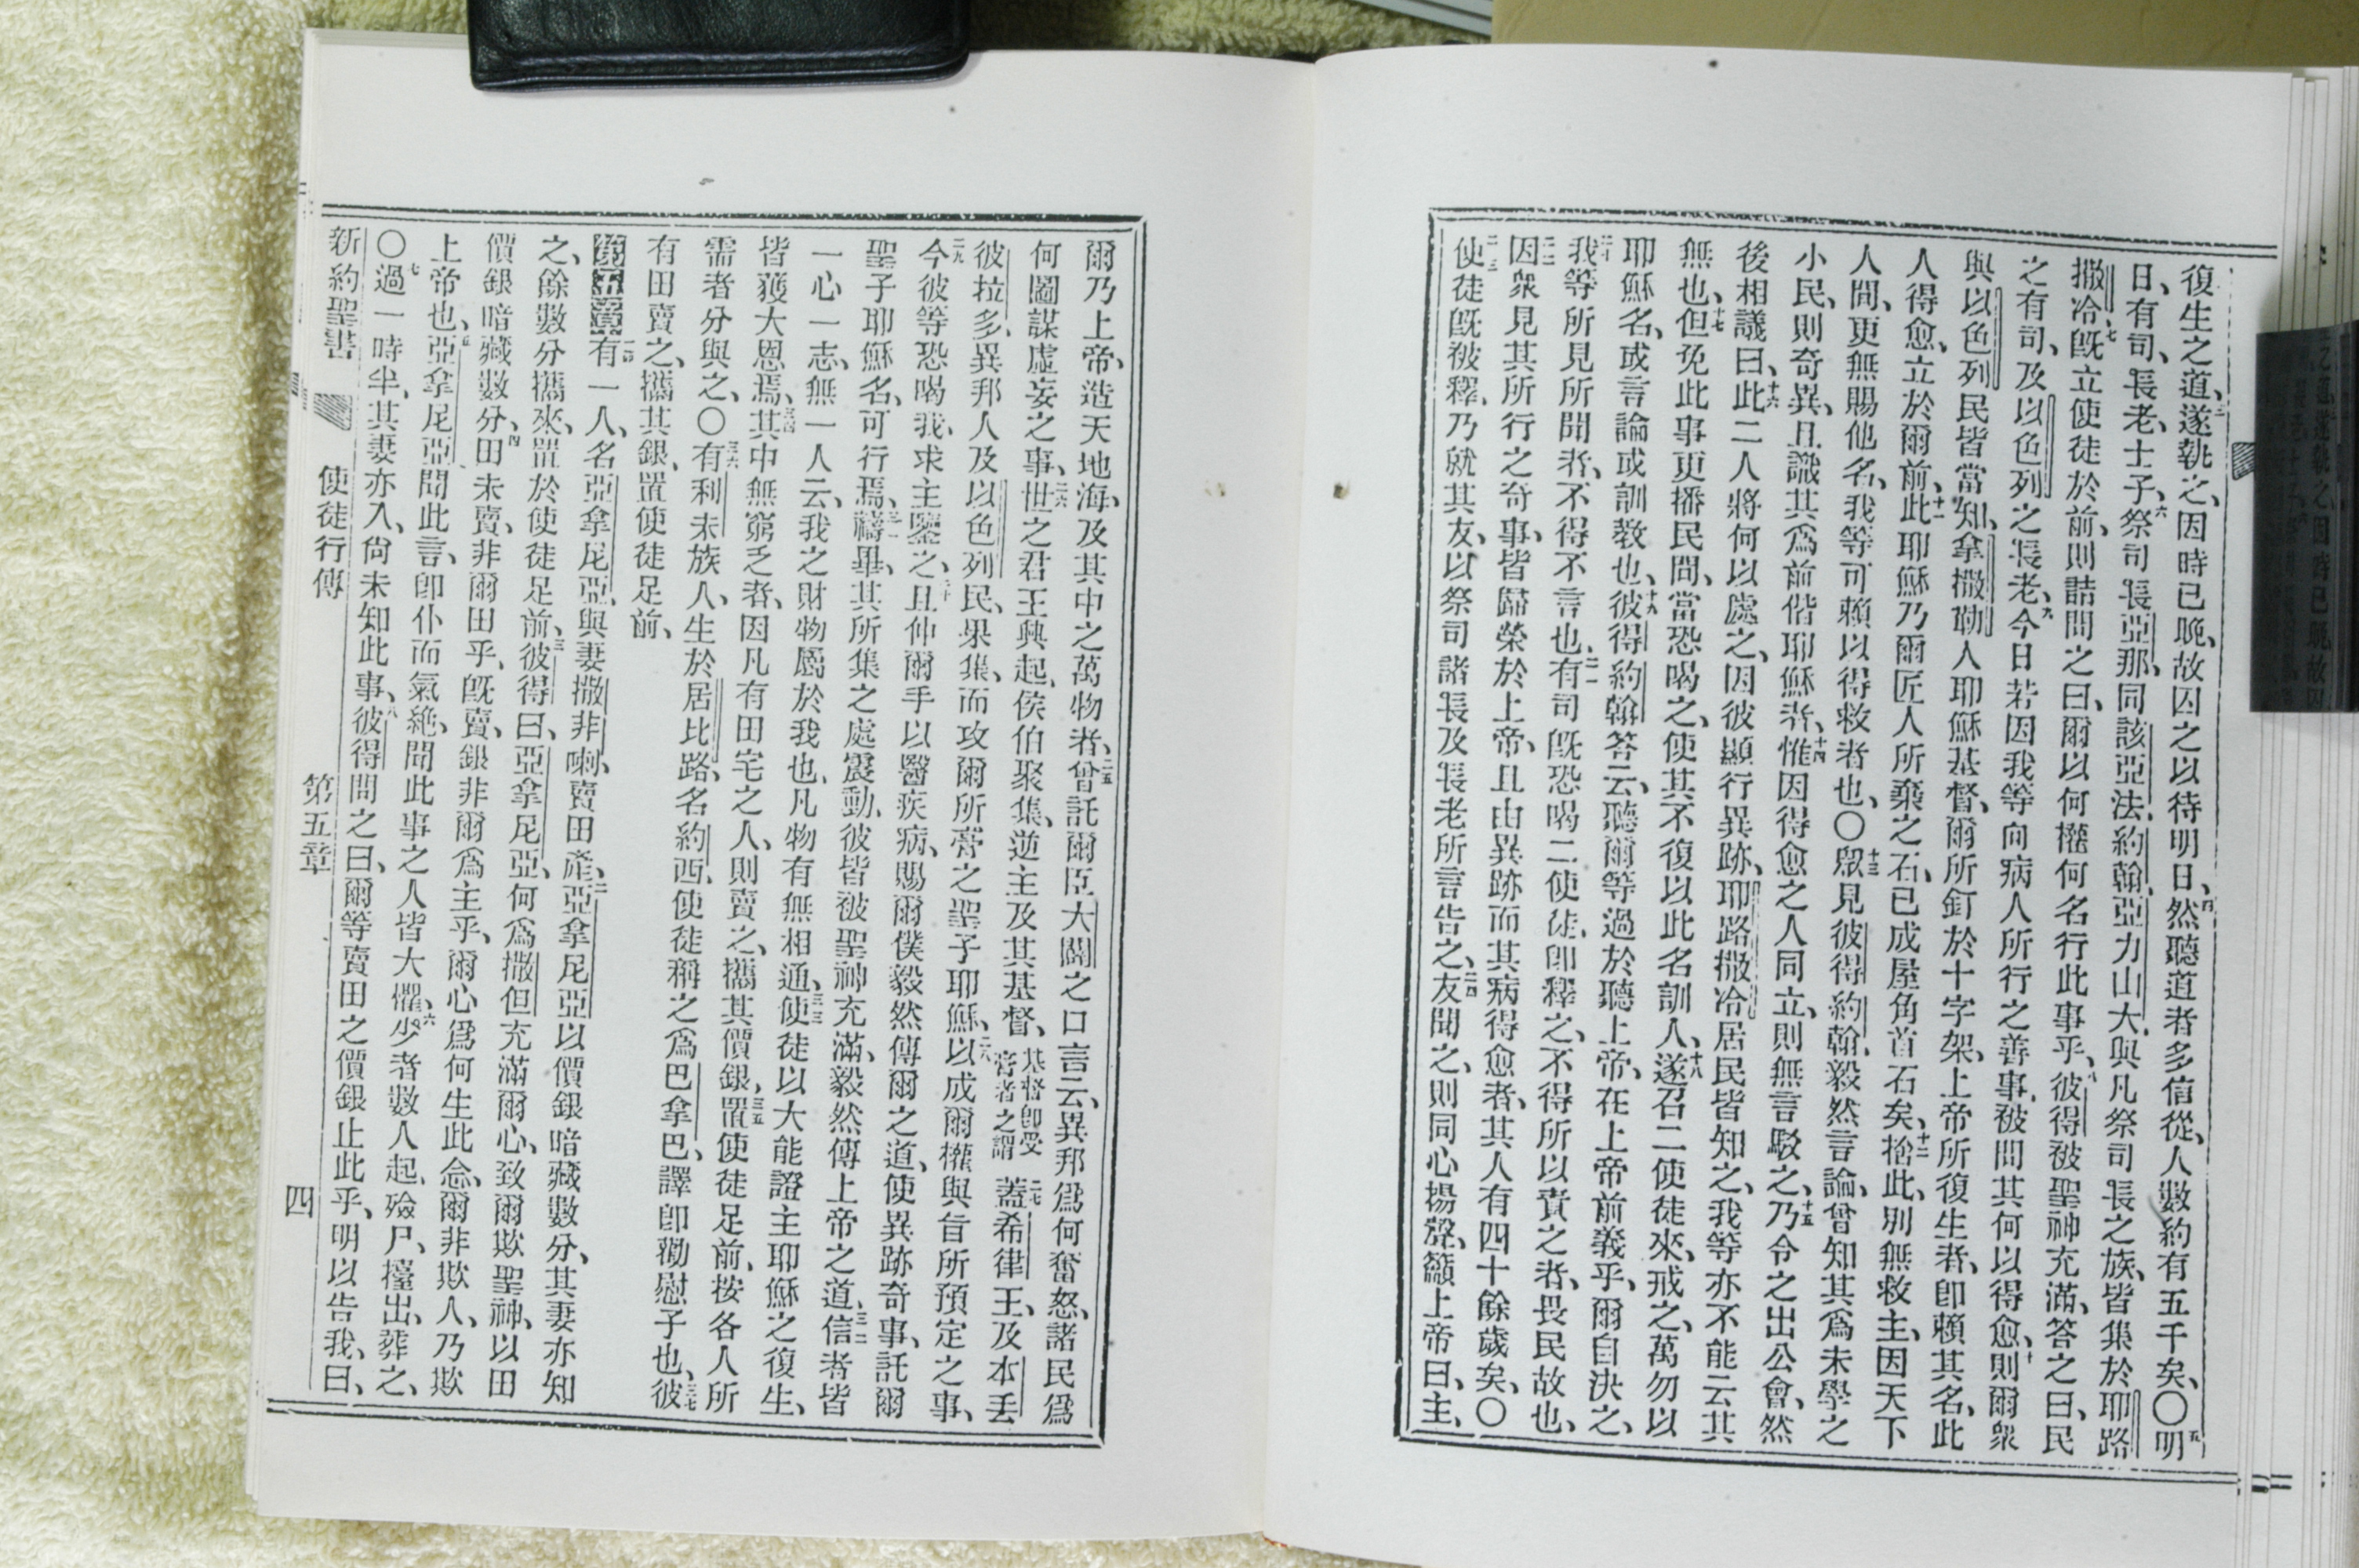 復生之道、三遂執之、因時已晚、故囚之以待明日、四然聽道者多信從、人數約有五千矣、〇五明
日、有司、長老、士子、六祭司長亞那、同該亞法、約翰、亞力山大、與凡祭司長之族、皆集於耶路
撒冷、七旣立使徒於前、則詰問之曰、爾以何權何名行此事乎、八彼得被聖神充滿、答之曰、民
之有司、及以色列之長老、九今日若因我等向病人所行之善事、被問其何以得愈、十則爾眾
與以色列民皆當知、拿撒勒人耶穌基督、爾所釘於十字架、上帝所復生者、卽賴其名、此
人得愈、立於爾前、十一此耶穌乃爾匠人所棄之石、已成屋角首石矣、十二捨此、別無救主、因天下
人間、更無賜他名、我等可賴以得救者也、〇十三眾見彼得約翰、毅然言論、曾知其爲未學之
小民、則奇異、且識其爲前偕耶穌者、十四惟因得愈之人同立、則無言駁之、十五乃令之出公會、然
後相議曰、十六此二人將何以處之、因彼顯行異跡、耶路撒冷居民皆知之、我等亦不能云其
無也、十七但免此事更播民間、當恐喝之、使其不復以此名訓人、十八遂召二使徒來、戒之、萬勿以
耶穌名、或言論或訓教也、十九彼得約翰答云、聽爾等過於聽上帝、在上帝前義乎、爾自決之、
二十我等所見所聞者、不得不言也、二一有司旣恐喝二使徒、卽釋之、不得所以責之者、畏民故也、
二二因眾見其所行之奇事、皆歸榮於上帝、且由異跡而其病得愈者、其人有四十餘歲矣、〇
二三使徒旣被釋、乃就其友、以祭司諸長及長老所言告之、二四友聞之、則同心揚聲、籲上帝曰、主、
爾乃上帝、造天地海、及其中之萬物者、二五曾託爾臣大闢之口言云、異邦爲何奮怒、諸民爲
何圖謀虛妄之事、二六世之君王興起、侯伯聚集、逆主及其基督、基督卽受膏者之謂二七蓋希律王、及本丟
彼拉多、異邦人及以色列民、果集、而攻爾所膏之聖子耶穌、二八以成爾權與旨所預定之事、
二九今彼等恐喝我、求主鑒之、三十且伸爾手以醫疾病、賜爾僕毅然傳爾之道、使異跡奇事、託爾
聖子耶穌名、可行焉、三一禱畢、其所集之處震動、彼皆被聖神充滿、毅然傳上帝之道、三二信者皆
一心一志、無一人云、我之財物屬於我也、凡物有無相通、三三使徒以大能證主耶穌之復生、
皆獲大恩焉、三四其中無窮乏者、因凡有田宅之人、則賣之、攜其價銀、三五置使徒足前、按各人所
需者分與之、〇三六有利未族人、生於居比路、名約西、使徒稱之爲巴拿巴、譯卽勸慰子也、三七彼
有田賣之、攜其銀、置使徒足前、
第五章一有一人、名亞拿尼亞、與妻撒非喇、賣田產、二亞拿尼亞以價銀暗藏數分、其妻亦知
之、餘數分攜來、置於使徒足前、三彼得曰、亞拿尼亞、何爲撒但充滿爾心、致爾欺聖神、以田
價銀暗藏數分、四田未賣、非爾田乎、旣賣、銀非爾爲主乎、爾心爲何生此念、爾非欺人、乃欺
上帝也、五亞拿尼亞聞此言、卽仆而氣絶、聞此事之人皆大懼、六少者數人起、殮尸、擡出、葬之、
〇七過一時半、其妻亦入、尙未知此事、八彼得問之曰、爾等賣田之價銀止此乎、明以告我、曰、
新約聖書 使徒行傳 第五章 四